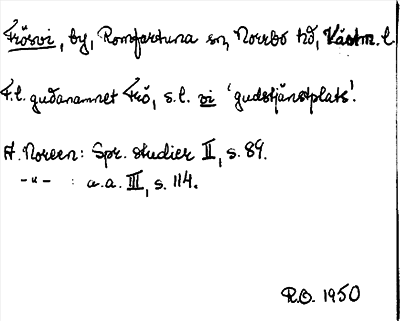 Frösvi, by, Romfartuna sn, Norrbo hd, Västm. l.
F.l. gudanamnet Frö, s.l. vi 'gudstjänstplats'.
A. Noreen: Spr. studier II, s. 89.
-"- : a.a. III, s. 114.
R.O. 1950